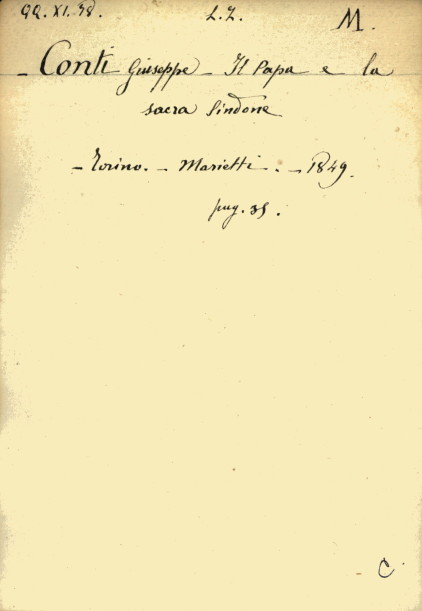 QQ. XI. 38. L. Z. M.
- Conti Giuseppe - Il Papa e la
sacra Sindone
- Torino. - Marietti. - 1849.
pag. 35.
C